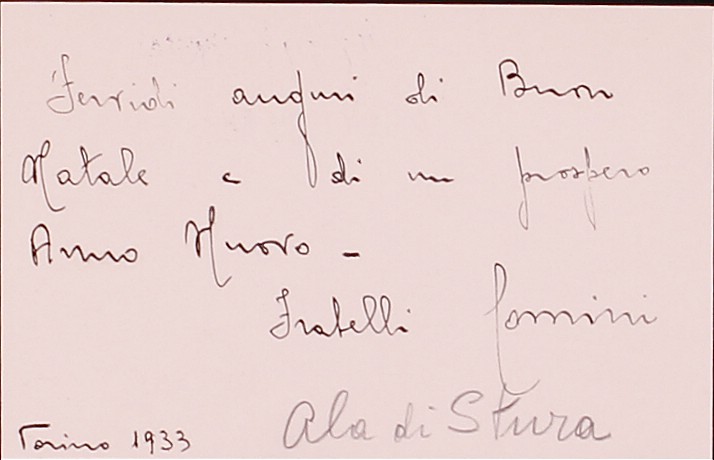 Fervidi auguri di Buon
Natale e di un prospero
Anno Nuovo -
Fratelli
Ala di Stura
Torino 1933